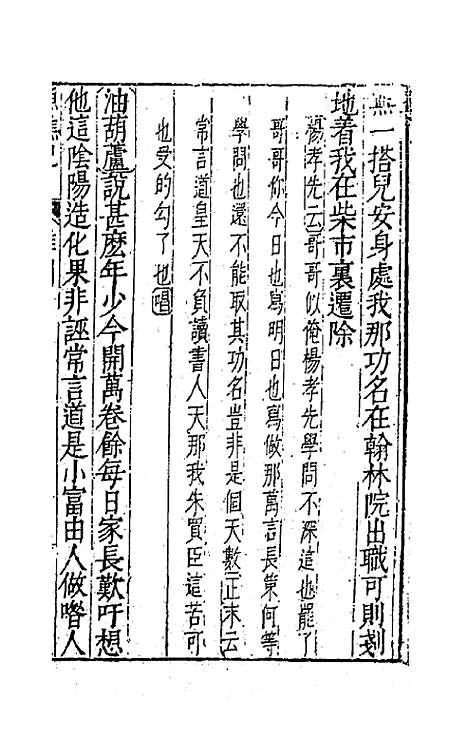 無一搭兒安身處我那功名在翰林院出職可則剗
地着我在柴市裏遷除
楊孝先云哥哥似俺楊孝先學問不深這也罷了
哥哥你今日也寫明日也寫做那萬言長策何等
學問也還不能取其功名豈非是個天數正末云
常言道皇天不負讀書人天那我朱買臣這苦可
也受的勾了也唱
油葫蘆說甚麽年少今開萬卷餘每日家長歎吁想
他這陰陽造化果非誣常言道是小富由人做喒人